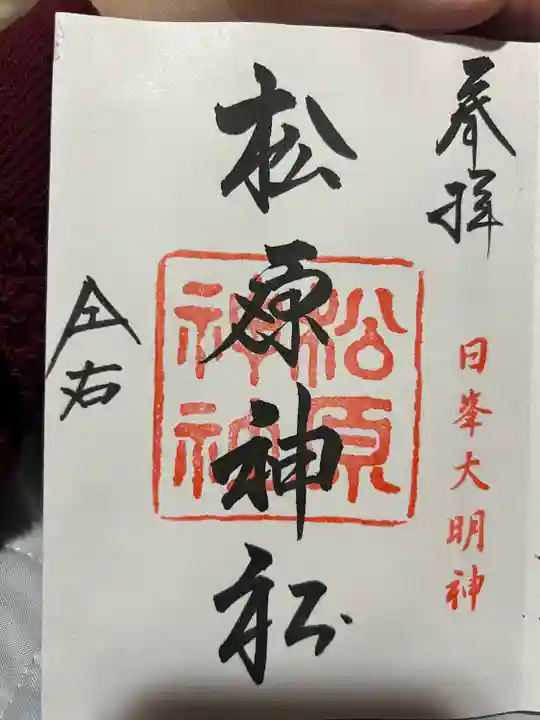 奉拝
日峯大明神
松原神社
松原
神社
右